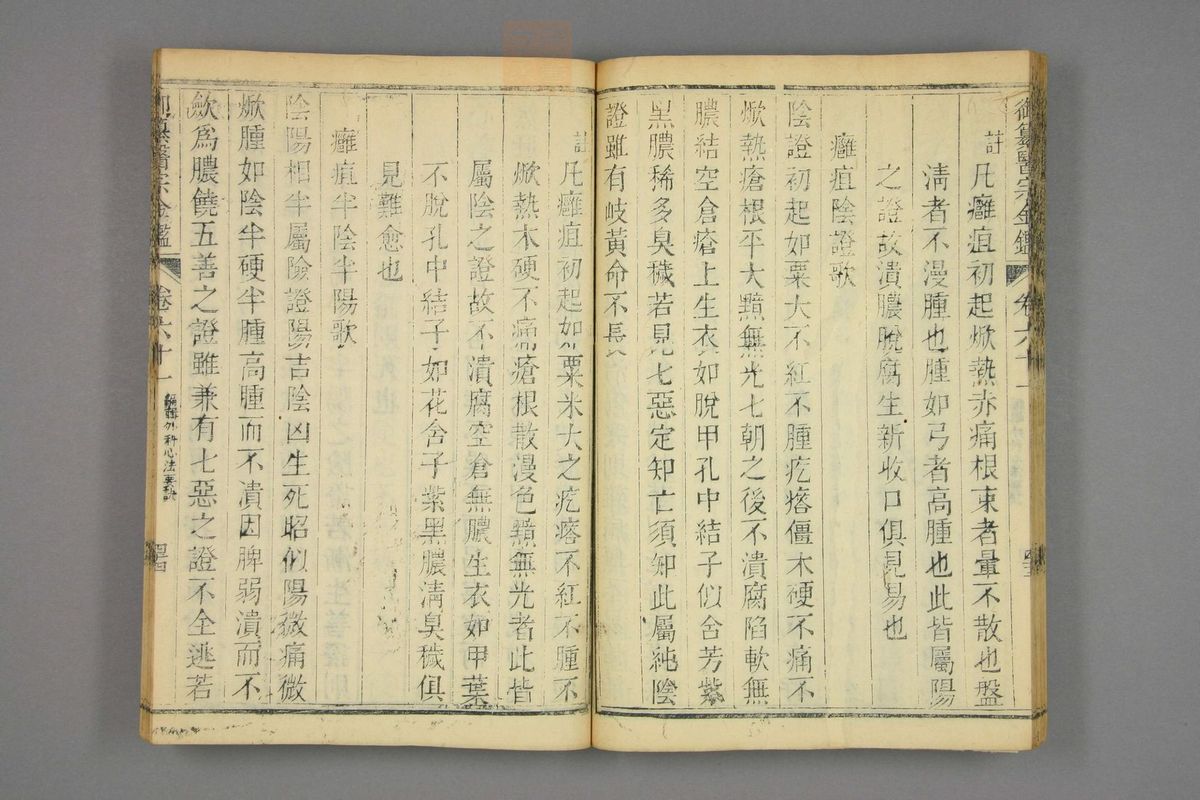 御纂醫宗金鑑 卷六十一
註 凡癰疽初起焮熱赤痛根束者暈不散也盤
清者不漫腫也腫如弓者高腫也此皆屬陽
之證故潰膿脫腐生新收口俱見易也
癰疽陰證歌
陰證初起如粟大不紅不腫疙瘩僵木硬不痛不
焮熱瘡根平大黯無光七朝之後不潰腐陷軟無
膿結空倉瘡上生衣如脫甲孔中結子似含芳紫
黑膿稀多臭穢若見七惡定知亡須知此屬純陰
證雖有岐黃命不長
註 凡癰疽初起如粟米大之疙瘩不紅不腫不
焮熱木硬不痛瘡根散漫色黯無光者此皆
屬陰之證故不潰腐空倉無膿生衣如甲葉
不脫孔中結子如花含子紫黑膿清臭穢俱
見難愈也
癰疽半陰半陽歌
陰陽相半屬險證陽吉陰凶生死昭似陽微痛微
焮腫如陰半硬半腫高腫而不潰因脾弱潰而不
斂為膿饒五善之證雖兼有七惡之證不全逃若
御纂醫宗金鑑 卷六十一 編輯外科心法要訣 四四